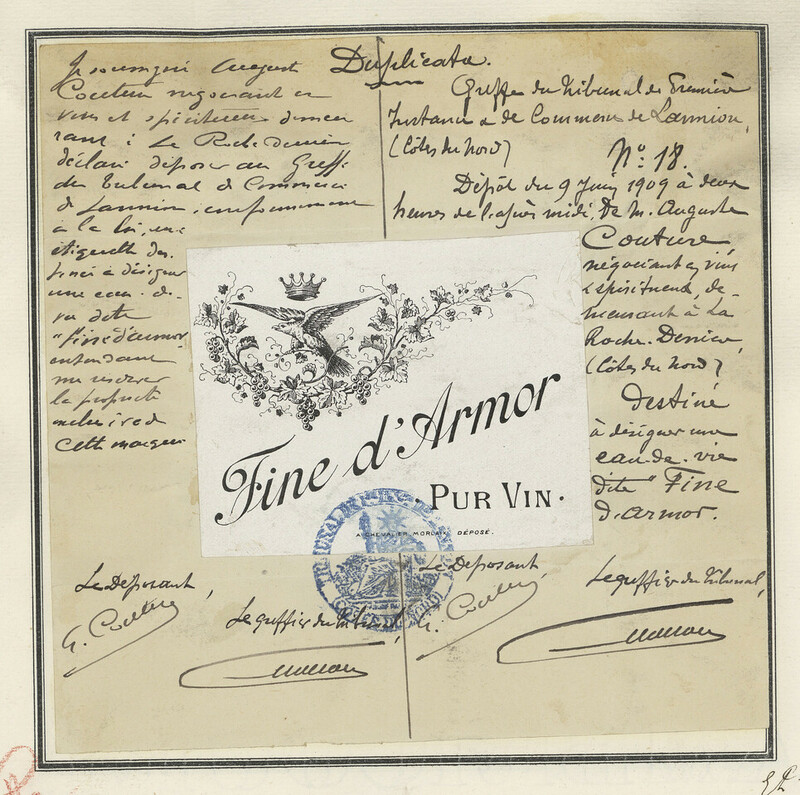 Duplicata.
Je soussigné August
Couture negociant en
vins et spiritueux demeu
rant à La Roche Derrien
déclare déposer au Greffe
du Tribunal de Commerce
de Lannion, conformement
à la loi, une
étiquette des
tinée à désigner
une eau-de-
vie dite
"Fine d'armor
entendant
me reserver
la propriété
exclusive de
cette marque
Le Deposant,
Le greffier du Tribunal,
Greffe du Tribunal de Première
Instance & de Commerce de Lannion,
(Côtes du Nord)
No. 18.
Dépôt du 9 Juin 1909 à deux
heures de l'après midi, De M. Auguste
Couture
négociant en vins
& spiritueux, de-
meurant à La
Roche-Derrien,
(Côtes du Nord)
Destiné
à désigner une
eau-de-vie
dite "Fine
d'Armor.
Le Deposant
Le greffier du Tribunal,
Fine d'Armor
PUR VIN.
A. CHEVALIER, MORLAIX, DÉPOSÉ.